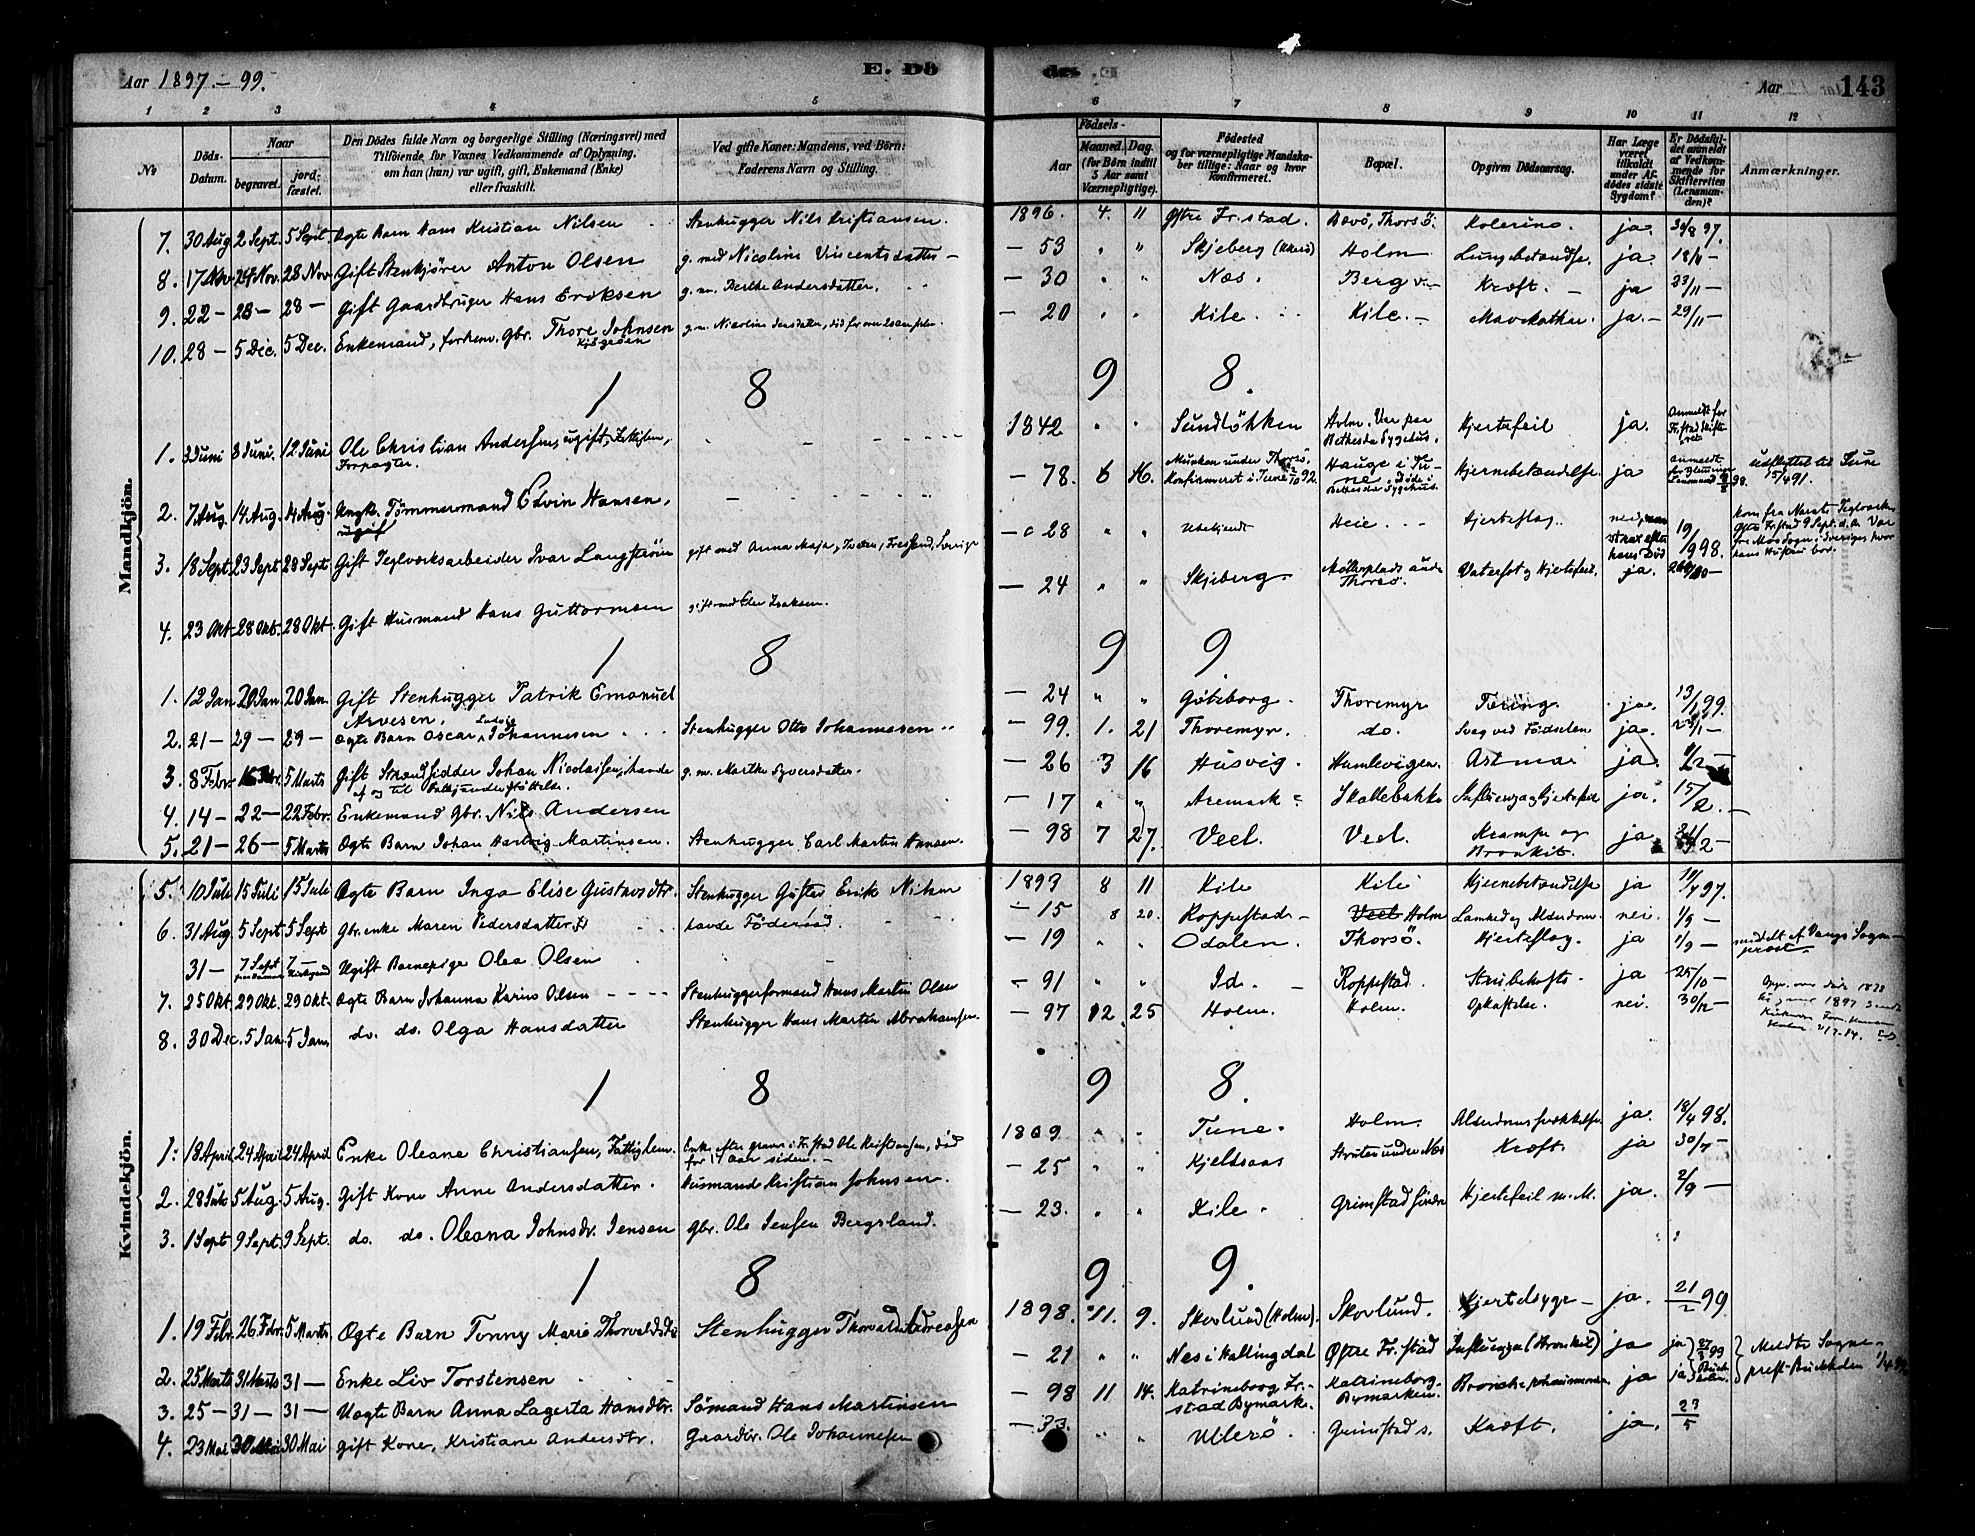 Aar 1897.-99.
E. Dö
de.
Aar
143
1 2 3 4 5 6 7 8 9 10 11 12
№
Döds-Datum.
Naar
begravet.
jord-fæstet.
Den Dödes fulde Navn og borgerlige Stilling (Næringsvei) med
Tilföiende for Voxnes Vedkommende af Oplysning,
om han (hun) var ugift, gift, Enkemand (Enke)
eller fraskilt.
Ved gifte Koner: Mandens, ved Börn:
Faderens Navn og Stilling.
Födsels-
Aar
Maaned.
Dag.
(for Börn indtil
5 Aar samt
Værnepligtige).
Födested
og for værnepligtige Mandska-
ber tillige: Naar og hvor
konfirmeret.
Bopæl.
Opgiven Dödsaarsag.
Har Læge
været
tilkaldt
under Af-
dödes sidste
Sygdom?
Er Dödsfal-
det anmeldt
af Vedkom-
mende for
Skifteretten
(Lensman-
den)?
Anmærkninger.
Mandkjön.
7. 30 Aug 2 Sept. 5 Sept. Ægte Barn Hans Kristian Nilsen Stenhugger Nils Kristiansen. 1896. 4. 11 Östre Fr.stad. Thorsö. Kolerine. ja. 30/8 97.
8. 17 Nov 24 Nov. 28 Nov Gift Stenkjörer Anton Olsen g. med Nicoline Vincentsdatter – – 53 " " Skjeberg Holm Lungebetændelse. ja. 18/11 –
9. 22 – 28 – 28 – Gift Gaardbruger Hans Eriksen g. m. Berthe Andersdatter. – 30 " " Næs. Berg Kræft. – ja 23/11 –
10. 28 – 5 Dec. 5 Dec. Enkemand, forhenv. Gbr. Thore Johnsen g. m. Nicoline – 20 " " Kile. Kile. – Mavekathar. ja. – 29/11 –
1 8 9 8.
1. 3 Juni 8 Juni. 12 Juni Ole Christian Andersen, ugift, Fattiglem,
Forpagter. 1842 " " Sundlökken Holm. Var paa
Bethesda Sygehus. Hjertefeil ja. Anmeldt for
Fr.stad Skifte-
ret
2. 7 Aug. 14 Aug. 14 Aug. Ungk. Tömmermand Edvin Hansen,
ugift – 78. 6 16. under Thorsö.
Konfirmeret i Tune 92. Hauge i Tu-
ne, Döde i
Bethesda Sygehus. Hjernebetændelse. ja anmeldt
Lensmand 98. udflyttet til Tune
15/4 91.
3. 18 Sept. 23 Sept 28 Sept. Gift Teglværksarbeider Ivar Langström gift med Anna Maja, Sverige – 28 " " Ubekjendt Heie. Hjerteslag. nei,
strax efter
hans Död 19/9 98.
4. 23 Okt 28 Okt. 28 Okt. Gift Husmand Hans Guttormsen gift med – 24 " " Skjeberg. under
Thorsö. Vatersot og Hjertefeil. ja.
1 8 9 9.
1. 12 Jan 20 Jan. 20 Jan. Gift Stenhugger Patrik Emanuel
Arvesen. – 24 " " Göteborg. Thoremyr Tæring. ja. 13/1 99.
2. 21 – 29 – 29 – Ægte Barn Oscar Ludvig Johannesen Stenhugger Otto Johannesen – 99. 1. 21 Thoremyr. do. Svag ved Födselen ja. 23/1 –
3. 8 Febr. 5 Marts Gift Strandsidder Johan Nicolaisen, havde
af og til Fattigunderstöttelse. g. m. Marthe Syversdatter. – 26 3 16 Husvig. Humlevigen. Astma ja. 9/2 –
4. 14 – 22 – 22 Febr. Enkemand Gbr. Nils Andersen – 17 " " Aremark Skallebakke Influenza og Hjertefeil ja. 15/2. –
5. 21 – 26 – 5 Marts Ægte Barn Johan Hartvig Martinsen. Stenhugger Carl Martin Hansen. – 98 7 27. Veel. Veel. Krampe og
Bronkit. ja /2 –
Kvindekjön.
5. 10 Juli 15 Juli 15 Juli Ægte Barn Inga Elise Gustavsdtr. Stenhugger Gustav Erik 1897 8 11 Kile Kile Hjernebetændelse ja 97.
6. 31 Aug. 5 Sept. 5 Sept Gbr.enke Maren Pedersdatter havde Föderaad. – 15 8 20. Roppestad – Veel Holm Lamhed og Alderdom. nei. 1/9 –
31 – 7 Sept 7 – Ugift Barnepige Olea Olsen – 19 " " Odalen. Thorsö. Hjerteslag. ja 1/9 – meddelt af Vangs Sogne-
prest
7. 25 Okt. 29 Okt. 29 Okt. Ægte Barn Johanna Karine Olsen Stenhuggerformand Hans Martin Olsen – 91 " " Id. – Roppestad. Strubehoste. ja 25/10 –
8. 30 Dec. 5 Jan. 5 Jan. do. do. Olga Hansdatter Stenhugger Hans Martin Abrahamsen. – 97 12 25 Holm. Holm. Opkastelse. nei. 30/12 –
1 8 9 8.
1. 18 April 24 April 24 April Enke Oleane Christiansen, Fattiglem. Enke efter i Fr.stad Ole Kristiansen, död
for 14 Aar siden. – 1809 " " Tune. Holm. Alderdomssvækkelse ja. 18/4 98.
2. 28 Juli 5 Aug. 5 Aug. Gift Kone Anne Andersdatter. Husmand Kristian Johnsen. – 25 " " under Næs Kræft. ja 30/7 –
3. 1 Sept 9 Sept. 9 Sept. do. do. Oleana Johnsdr. Jensen Gbr. Ole Jensen Bergsland. – 23. " " Kile. Grimstad Hjertefeil m. M. ja. 2/9 –
1 8 9 9.
1. 19 Febr. 26 Febr. 5 Marts Ægte Barn Tonny Marie Thorvaldsdtr Stenhugger Thorvald Andreasen 1898. 11. 9. Skovlund (Holm). Skovlund. Hjertesyge – ja. 21/2 99
2. 25 Marts 31 Marts 31 – Enke Liv Torstensen – 21 " " Nes i Hallingdal Östre Fr.stad Influenza (Bronkit) ja ja 27/3 99 Meldt Sogne-
3. 25 – 31 – 31 – Uægte Barn Anna Lagerta Hansdtr. Sömand Hans Martinsen – 98 11 14. Katrineborg Fr.-
stad Bymark. Katrineborg.
Bymarken. ja ja
4. 23 Mai 30 Mai 30 Mai Gift Kone, Kristiane Andersdtr. Gaardbr. Ole Johannesen – 33. " " Ullerö. Grimstad s. Kræft. ja. 23/5